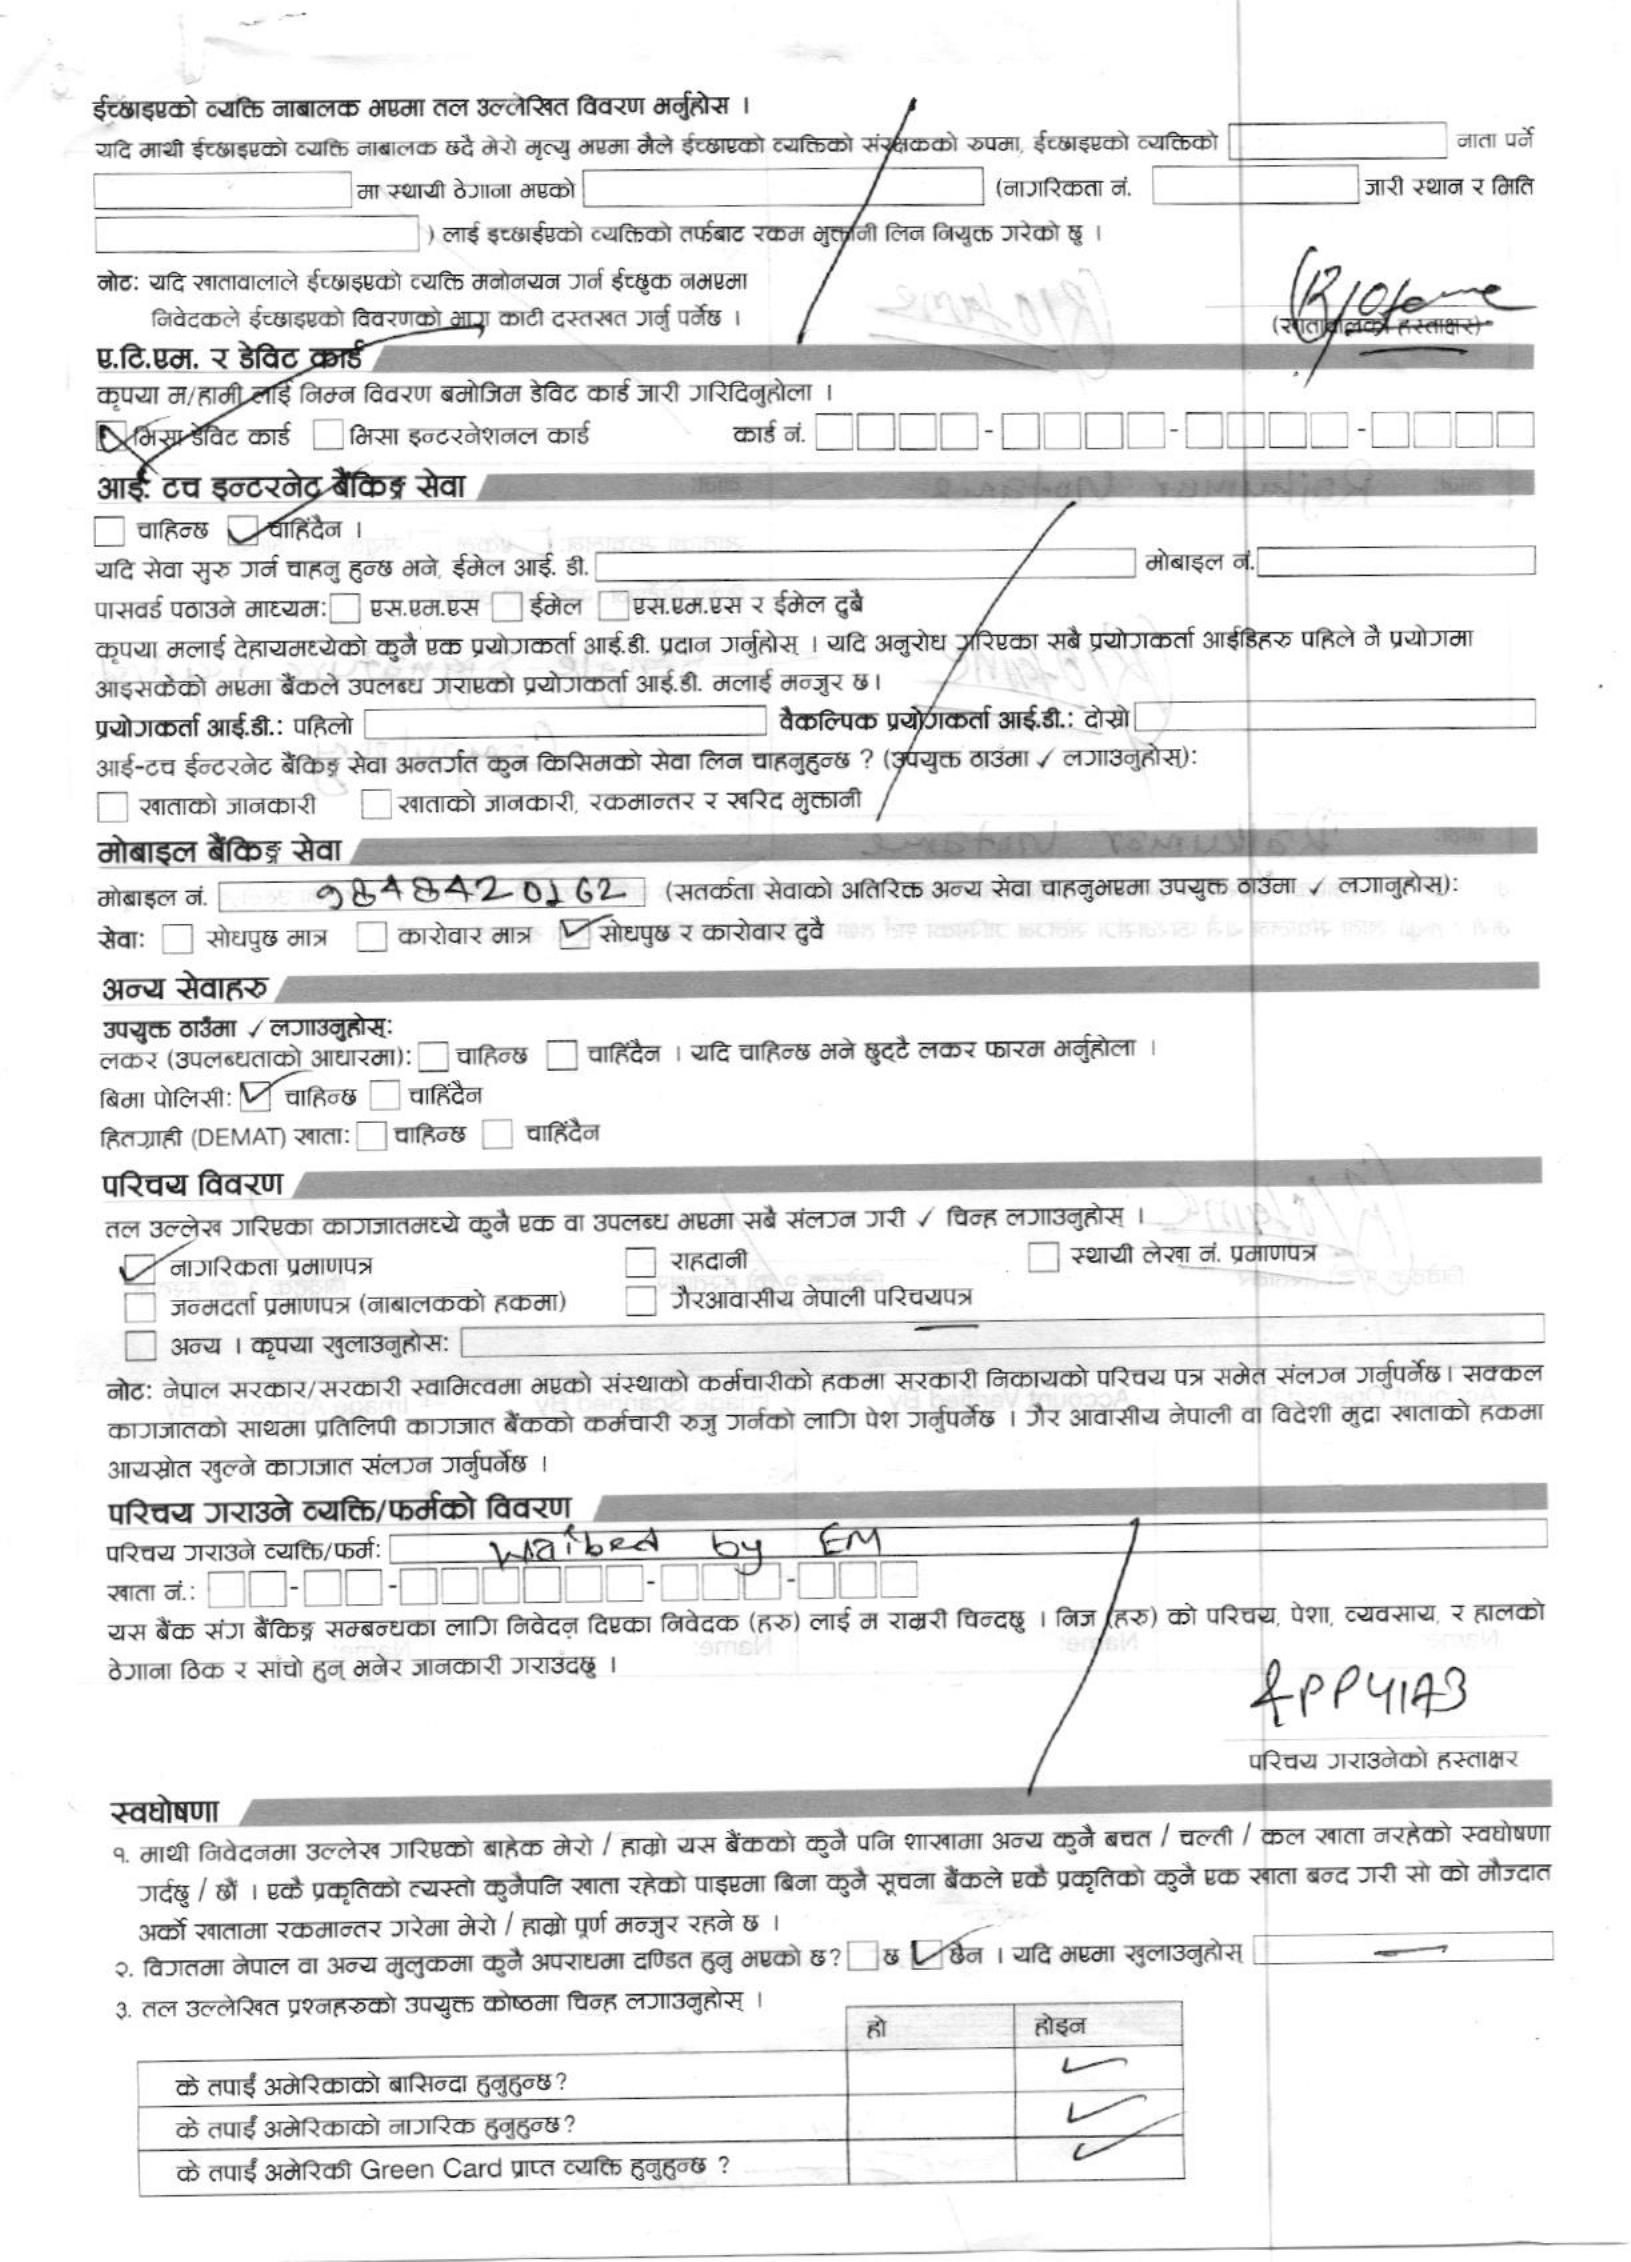 ईच्छाइएको व्यक्ति नाबालक भएमा तल उल्लेखित विवरण भर्नुहोस ।
यदि माथी ईच्छाइएको व्यक्ति नाबालक छदै मेरो मृत्यु भएमा मैले ईच्छाएको व्यक्तिको संरक्षकको रुपमा, ईच्छाइएको व्यक्तिको नाता पर्ने
मा स्थायी ठेगाना भएको (नागरिकता नं. जारी स्थान र मिति
) लाई इच्छाईएको व्यक्तिको तर्फबाट रकम भुक्तानी लिन नियुक्त गरेको छु ।
नोट: यदि खातावालाले ईच्छाइएको व्यक्ति मनोनयन गर्न ईच्छुक नभएमा
निवेदकले ईच्छाइएको विवरणको भाग काटी दस्तखत गर्नु पर्नेछ ।
(खातावालको हस्ताक्षर)
ए.टि.एम. र डेविट कार्ड
कृपया म/हामी लाई निम्न विवरण बमोजिम डेविट कार्ड जारी गरिदिनुहोला ।
भिसा डेविट कार्ड भिसा इन्टरनेशनल कार्ड कार्ड नं. - - -
आई. टच इन्टरनेट बैंकिङ्ग सेवा
चाहिन्छ चाहिंदैन ।
यदि सेवा सुरु गर्न चाहनु हुन्छ भने, ईमेल आई. डी. मोबाइल नं.
पासवर्ड पठाउने माध्यम: एस.एम.एस ईमेल एस.एम.एस र ईमेल दुबै
कृपया मलाई देहायमध्येको कुनै एक प्रयोगकर्ता आई.डी. प्रदान गर्नुहोस् । यदि अनुरोध गरिएका सबै प्रयोगकर्ता आईडिहरु पहिले नै प्रयोगमा
आइसकेको भएमा बैंकले उपलब्ध गराएको प्रयोगकर्ता आई.डी. मलाई मन्जुर छ।
प्रयोगकर्ता आई.डी.: पहिलो वैकल्पिक प्रयोगकर्ता आई.डी.: दोस्रो
आई-टच ईन्टरनेट बैंकिङ्ग सेवा अन्तर्गत कुन किसिमको सेवा लिन चाहनुहुन्छ ? (उपयुक्त ठाउंमा ✓ लगाउनुहोस्):
खाताको जानकारी खाताको जानकारी, रकमान्तर र खरिद भुक्तानी
मोबाइल बैंकिङ्ग सेवा
मोबाइल नं. 9848420162 (सतर्कता सेवाको अतिरिक्त अन्य सेवा चाहनुभएमा उपयुक्त ठाउँमा ✓ लगानुहोस):
सेवा: सोधपुछ मात्र कारोवार मात्र सोधपुछ र कारोवार दुवै
अन्य सेवाहरु
उपयुक्त ठाउँमा ✓ लगाउनुहोस्:
लकर (उपलब्धताको आधारमा): चाहिन्छ चाहिंदैन । यदि चाहिन्छ भने छुट्टै लकर फारम भर्नुहोला ।
बिमा पोलिसी: चाहिन्छ चाहिंदैन
हितग्राही (DEMAT) खाता: चाहिन्छ चाहिंदैन
परिचय विवरण
तल उल्लेख गरिएका कागजातमध्ये कुनै एक वा उपलब्ध भएमा सबै संलग्न गरी ✓ चिन्ह लगाउनुहोस् ।
नागरिकता प्रमाणपत्र राहदानी स्थायी लेखा नं. प्रमाणपत्र
जन्मदर्ता प्रमाणपत्र (नाबालकको हकमा) गैरआवासीय नेपाली परिचयपत्र
अन्य । कृपया खुलाउनुहोस:
नोट: नेपाल सरकार/सरकारी स्वामित्वमा भएको संस्थाको कर्मचारीको हकमा सरकारी निकायको परिचय पत्र समेत संलग्न गर्नुपर्नेछ। सक्कल
कागजातको साथमा प्रतिलिपी कागजात बैंकको कर्मचारी रुजु गर्नको लागि पेश गर्नुपर्नेछ । गैर आवासीय नेपाली वा विदेशी मुद्रा खाताको हकमा
आयस्रोत खुल्ने कागजात संलग्न गर्नुपर्नेछ ।
परिचय गराउने व्यक्ति/फर्मको विवरण
परिचय गराउने व्यक्ति/फर्म: Waibed by EM
खाता नं.: - - - -
यस बैंक संग बैंकिङ्ग सम्बन्धका लागि निवेदन दिएका निवेदक (हरु) लाई म राम्ररी चिन्दछु । निज (हरु) को परिचय, पेशा, व्यवसाय, र हालको
ठेगाना ठिक र सांचो हुन् भनेर जानकारी गराउंदछु ।
परिचय गराउनेको हस्ताक्षर
स्वघोषणा
१. माथी निवेदनमा उल्लेख गरिएको बाहेक मेरो / हाम्रो यस बैंकको कुनै पनि शाखामा अन्य कुनै बचत / चल्ती / कल खाता नरहेको स्वघोषणा
गर्दछु / छौं । एकै प्रकृतिको त्यस्तो कुनैपनि खाता रहेको पाइएमा बिना कुनै सूचना बैंकले एकै प्रकृतिको कुनै एक खाता बन्द गरी सो को मौज्दात
अर्को खातामा रकमान्तर गरेमा मेरो / हाम्रो पूर्ण मन्जुर रहने छ ।
२. विगतमा नेपाल वा अन्य मुलुकमा कुनै अपराधमा दण्डित हुनु भएको छ? छ छैन । यदि भएमा खुलाउनुहोस्
३. तल उल्लेखित प्रश्नहरुको उपयुक्त कोष्ठमा चिन्ह लगाउनुहोस् ।
हो होइन
के तपाईं अमेरिकाको बासिन्दा हुनुहुन्छ? ✓
के तपाईं अमेरिकाको नागरिक हुनुहुन्छ? ✓
के तपाईं अमेरिकी Green Card प्राप्त व्यक्ति हुनुहुन्छ ? ✓